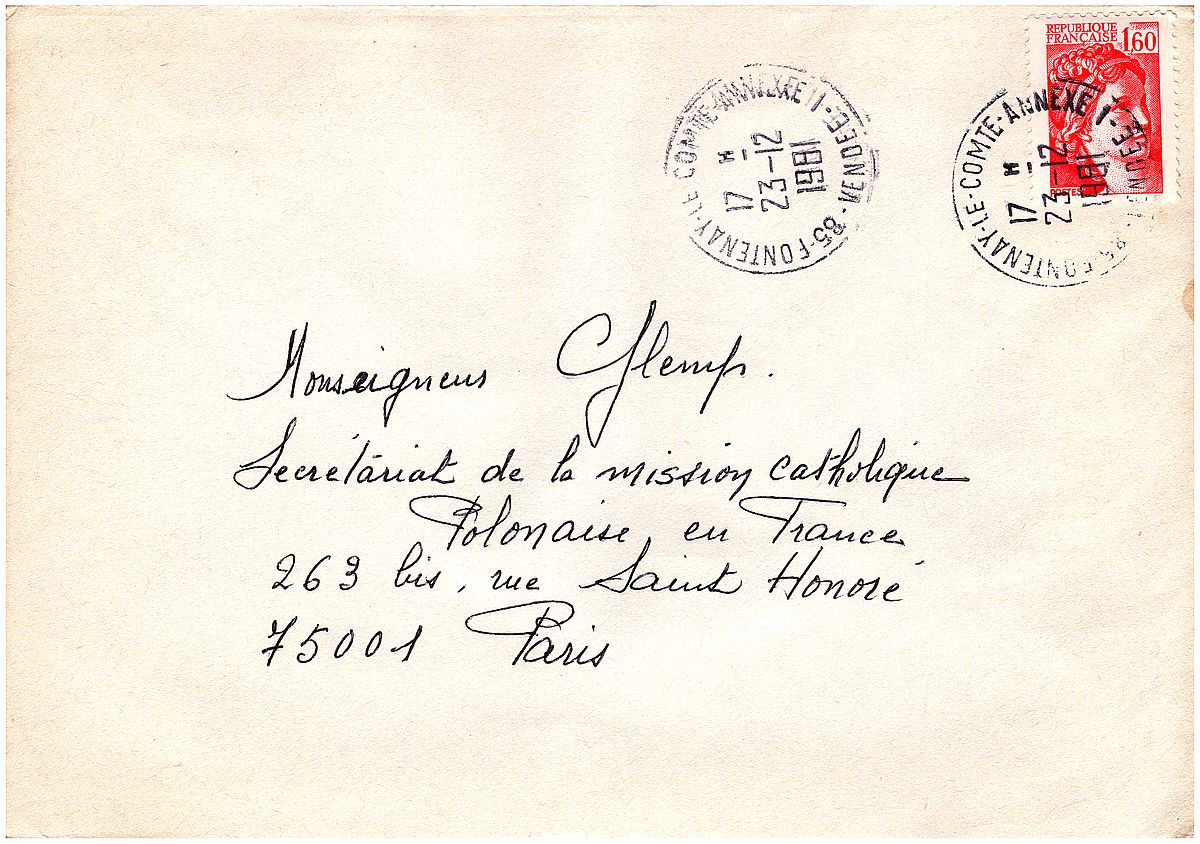 REPUBLIQUE
FRANÇAISE
1,60
POSTES
85-FONTENAY-LE-COMTE-ANNEXE 1-VENDEE
17 H
23-12
1981
85-FONTENAY-LE-COMTE-ANNEXE 1-VENDEE
17 H
23-12
1981
Monseigneur Glemp.
Secrétariat de la mission catholique
Polonaise en France
263 bis, rue Saint Honoré
75001 Paris